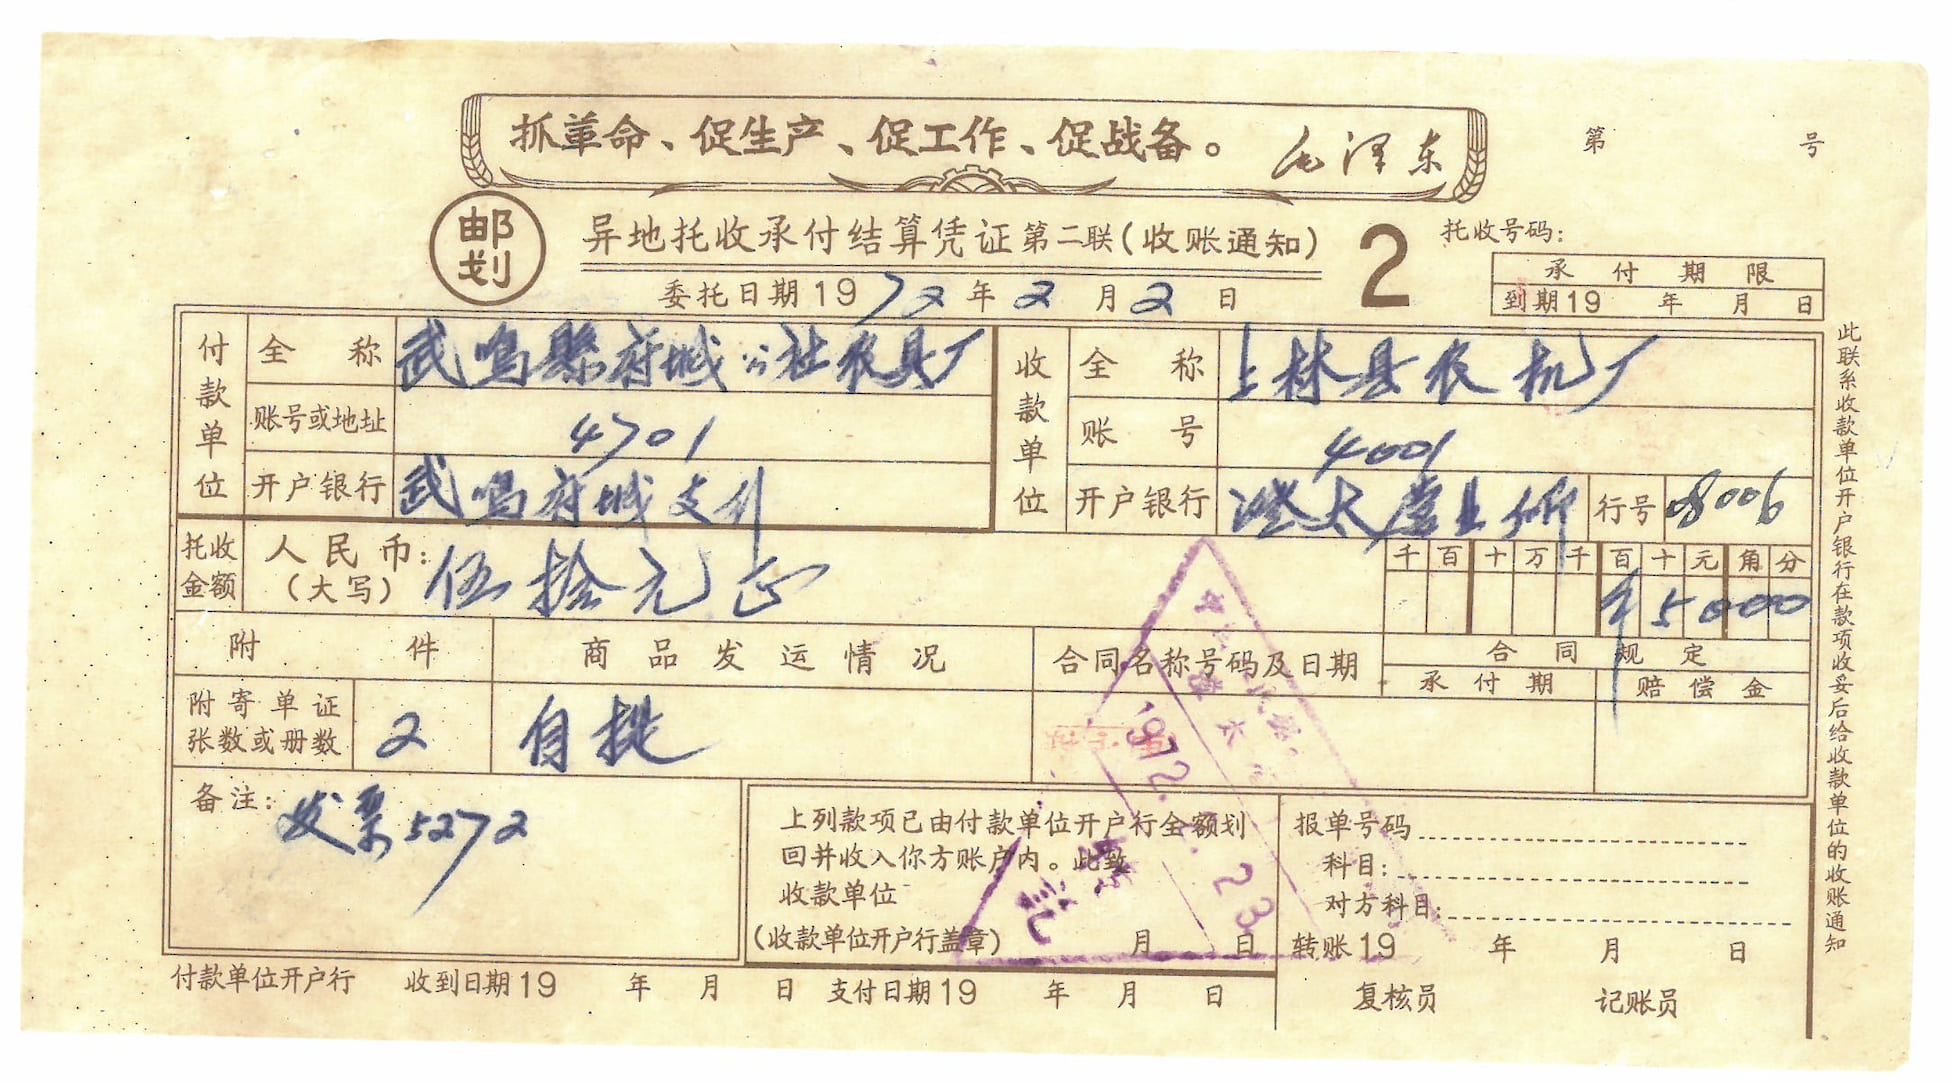 抓革命、促生产、促工作、促战备。 毛泽东
第 号
邮划
异地托收承付结算凭证第二联(收账通知) 2
托收号码:
委托日期1972年2月2日
承付期限
到期19 年 月 日
付款单位
全称 武鸣縣府城公社农具厂
账号或地址 4701
开户银行 武鸣府城支行
收款单位
全称 上林县农机厂
账号 4001
开户银行 澄太营业所 行号 08006
托收金额
人民币:(大写) 伍拾元正
千百十万千百十元角分
¥5000
附件
商品发运情况
合同名称号码及日期
合同规定
承付期 赔偿金
附寄单证张数或册数 2
自提
备注: 发票5272
上列款项已由付款单位开户行全额划
回并收入你方账户内。此致
收款单位
(收款单位开户行盖章) 月 日
报单号码
科目:
对方科目:
转账19 年 月 日
付款单位开户行 收到日期19 年 月 日 支付日期19 年 月 日
复核员 记账员
此联系收款单位开户银行在款项收妥后给收款单位的收账通知
1972. 23